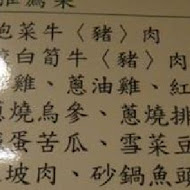 泡菜牛〈豬〉肉
白筍牛〈豬〉肉
雞、蔥油雞、紅
蔥燒烏參、蔥燒排
蛋苦瓜、雪菜豆
坡肉、砂鍋魚頭